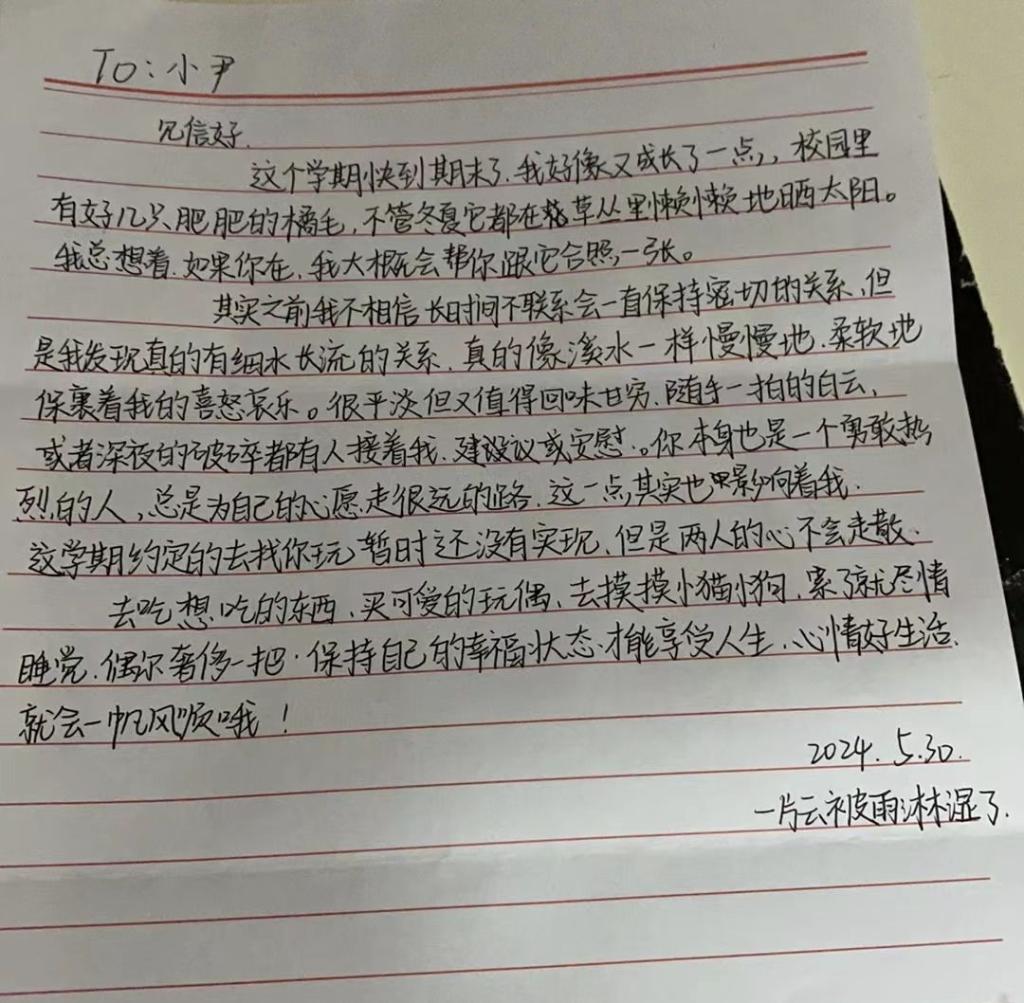 To：小尹
见信好.
这个学期快到期末了.我好像又成长了一点,，校园里
有好几只肥肥的橘毛，不管冬夏它都在草丛里懒懒地晒太阳。
我总想着.如果你在.我大概会帮你跟它合照一张。
其实之前我不相信长时间不联系会一直保持密切的关系.但
是我发现真的有细水长流的关系.真的像溪水一样慢慢地.柔软地
保裹着我的喜怒哀乐。很平淡但又值得回味甘穷.随手一拍的白云.
或者深夜的破碎都有人接着我.建议或安慰.。你本身也是一个勇敢热
烈的人，总是为自己的心愿走很远的路.这一点其实也影响着我.
这学期约定的去找你玩暂时还没有实现.但是两人的心不会走散.
去吃想吃的东西.买可爱的玩偶.去摸摸小猫小狗.累了就尽情
睡觉.偶尔奢侈一把.保持自己的幸福状态.才能享受人生.心情好生活.
就会一帆风顺哦！
2024.5.30.
一片云被雨淋湿了.